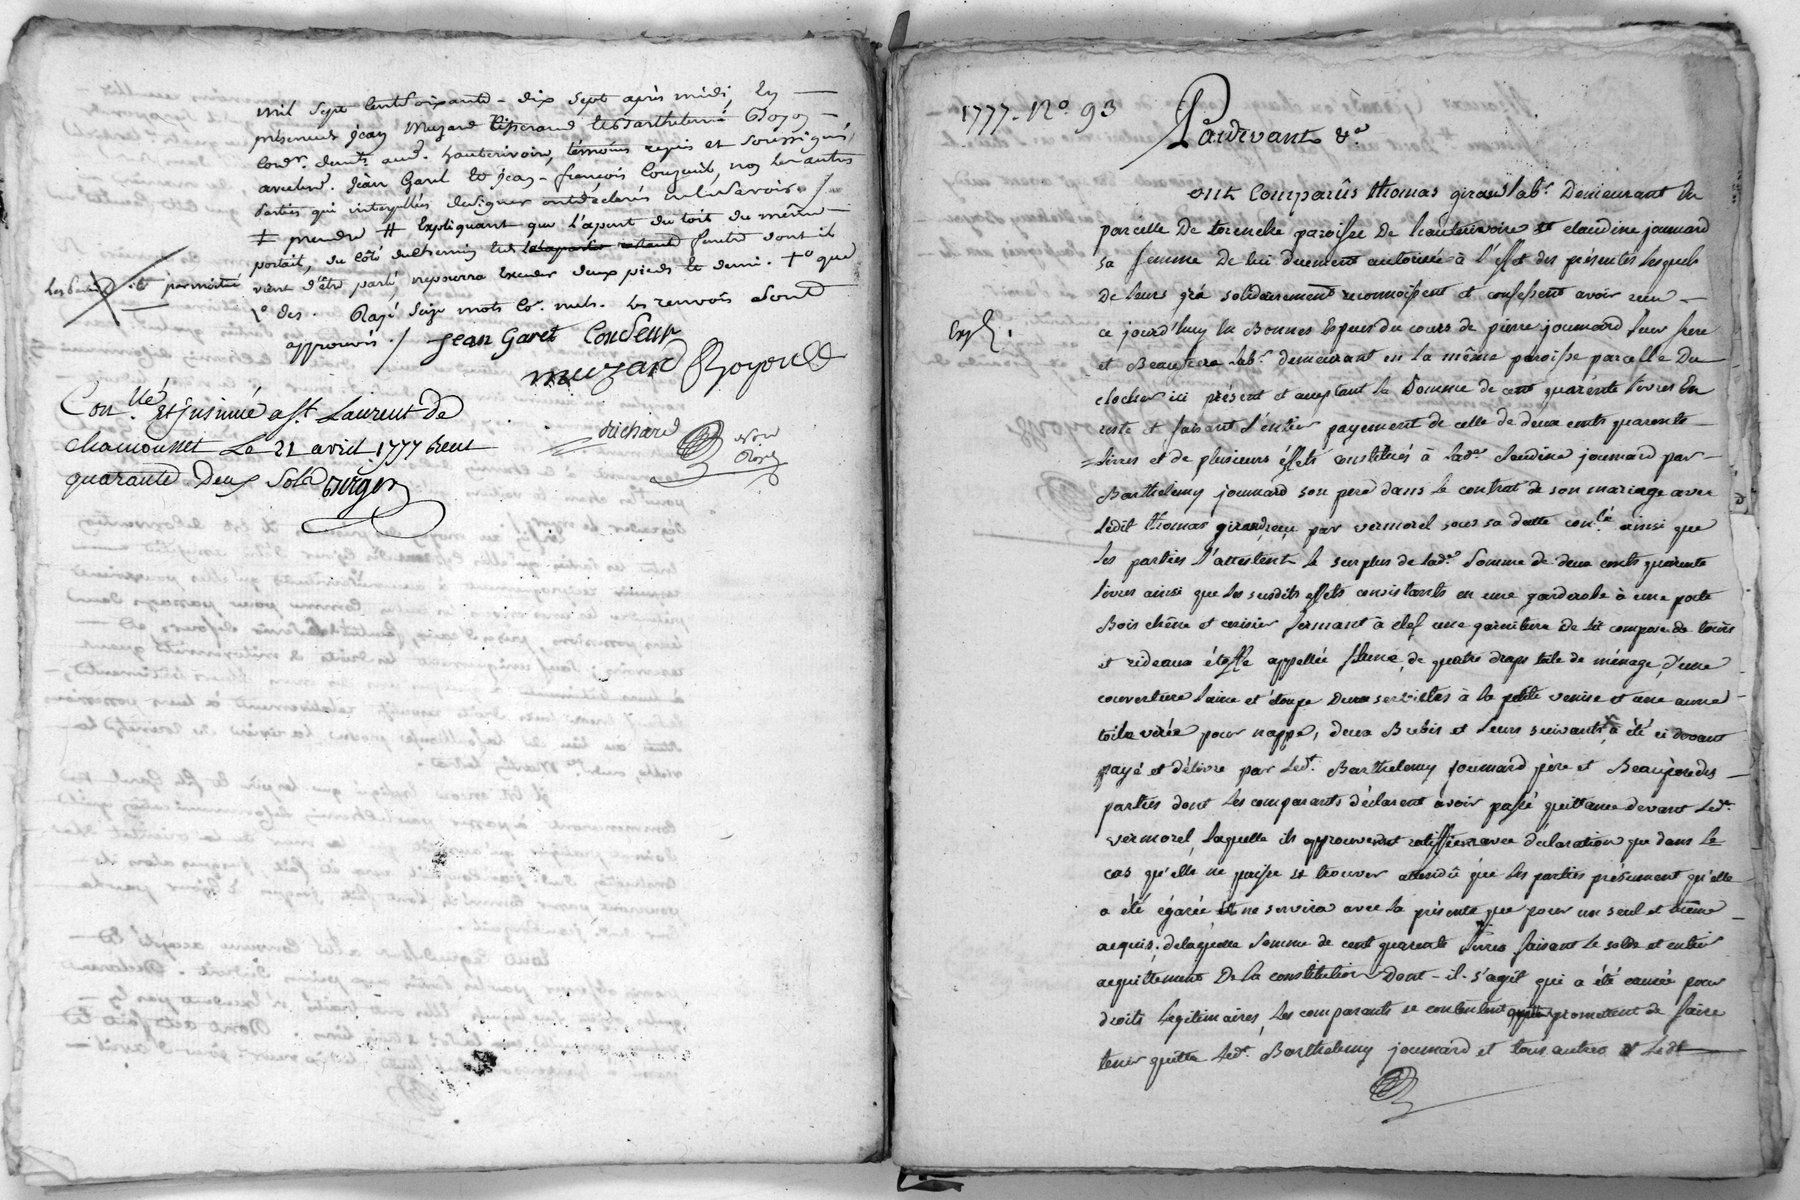 mil sept cent soixante-dix sept après midi, En
présence de jean Muzard tisserand et Barthelemi Goyon
cord.r demts. aud. hauterivoire, témoins requis et soussignés,
avec led. Jean Garel et jean-françois Condeur, non les autres
parties qui interpellées de signer ont déclarés ne le savoir ./
‡ prendre # Expliquant que l'apent du toit du même
portail, du côté du chemin et feutre dont il
vient d'être parlé, ne pourra Exceder deux pieds et demi. +° que
Rayé seize mots co. nuls. les renvois sont
approuvés ./
jean Garel Condeur
muzard
richard
Con.llé Et insinué a St. Laurent de
chamousset Le 21 avril 1777 Reçu
quarante Deux Sols
1777. No. 93
Pardevant &a
ont Comparûs thomas giraud lab.r Demeurant en
parcelle De torenche paroisse De hauterivoire et claudine joumard
sa femme De lui duement autorisée à l'effet des présentes lesquels
De leurs gré solidairement reconnoissent et confessent avoir reçu
ce jourd'huy En Bonnes Especes du cours de pierre joumard leur frere
Exp.
et Beaufrere lab.r demeurant en la même paroisse parcelle Du
clocher ici présent et acceptant la Somme de cent quarente livres En
reste et faisant l'entier payement de celle de deux cents quarente
livres et de plusieurs éffets constitués à lad.e Claudine joumard par
Barthelemy joumard son pere dans le contrat de son mariage avec
ledit thomas giraud, reçu par vermorel sous sa datte con.lé ainsi que
les parties l'attestent le surplus de lad.e somme de deux cents quarente
livres ainsi que les susdits effets consistants en une garderobe à une porte
Bois chêne et cerisier fermant à clef une garniture de lit composée de tours
et rideaux étoffe appellée de quatre draps toile de ménage, d'une
couverture laine et étoupe Deux serviettes à la petite venise et une aune
toile pour nappe, deux Brebis et leurs suivants, à été ci devant
payé et délivré par led.t Barthelemy joumard père et Beaupere des
parties dont les comparants déclarent avoir passé quittance devant led.t
vermorel, laquelle ils approuvent ratiffient avec déclaration que dans le
cas qu'elle ne puisse se trouver attendû que les parties présument qu'elle
a été égarée ne servira avec la présente que pour un seul et même
acquis; de laquelle somme de cent quarente livres faisant le solde et entier
acquittement De la constitution Dont-il-s'agit qui a été causée pour
droits Legitimaires, Les comparants se contentent promettent de faire
tenir quitte led.t Barthelemy joumard et tous autres et ledt